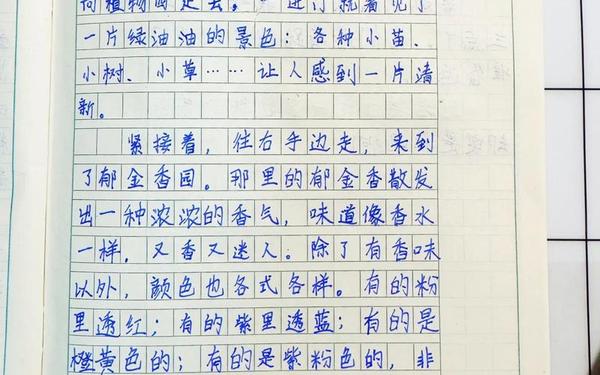 向植物园走去。一进门就看见了
一片绿油油的景色：各种小苗、
小树、小草……让人感到一片清
新。
紧接着，往右手边走，来到
了郁金香园。那里的郁金香散发
出一种浓浓的香气，味道像香水
一样，又香又迷人。除了有香味
以外，颜色也各式各样。有的粉
里透红；有的紫里透蓝；有的是
橙黄色的；有的是紫粉色的，非